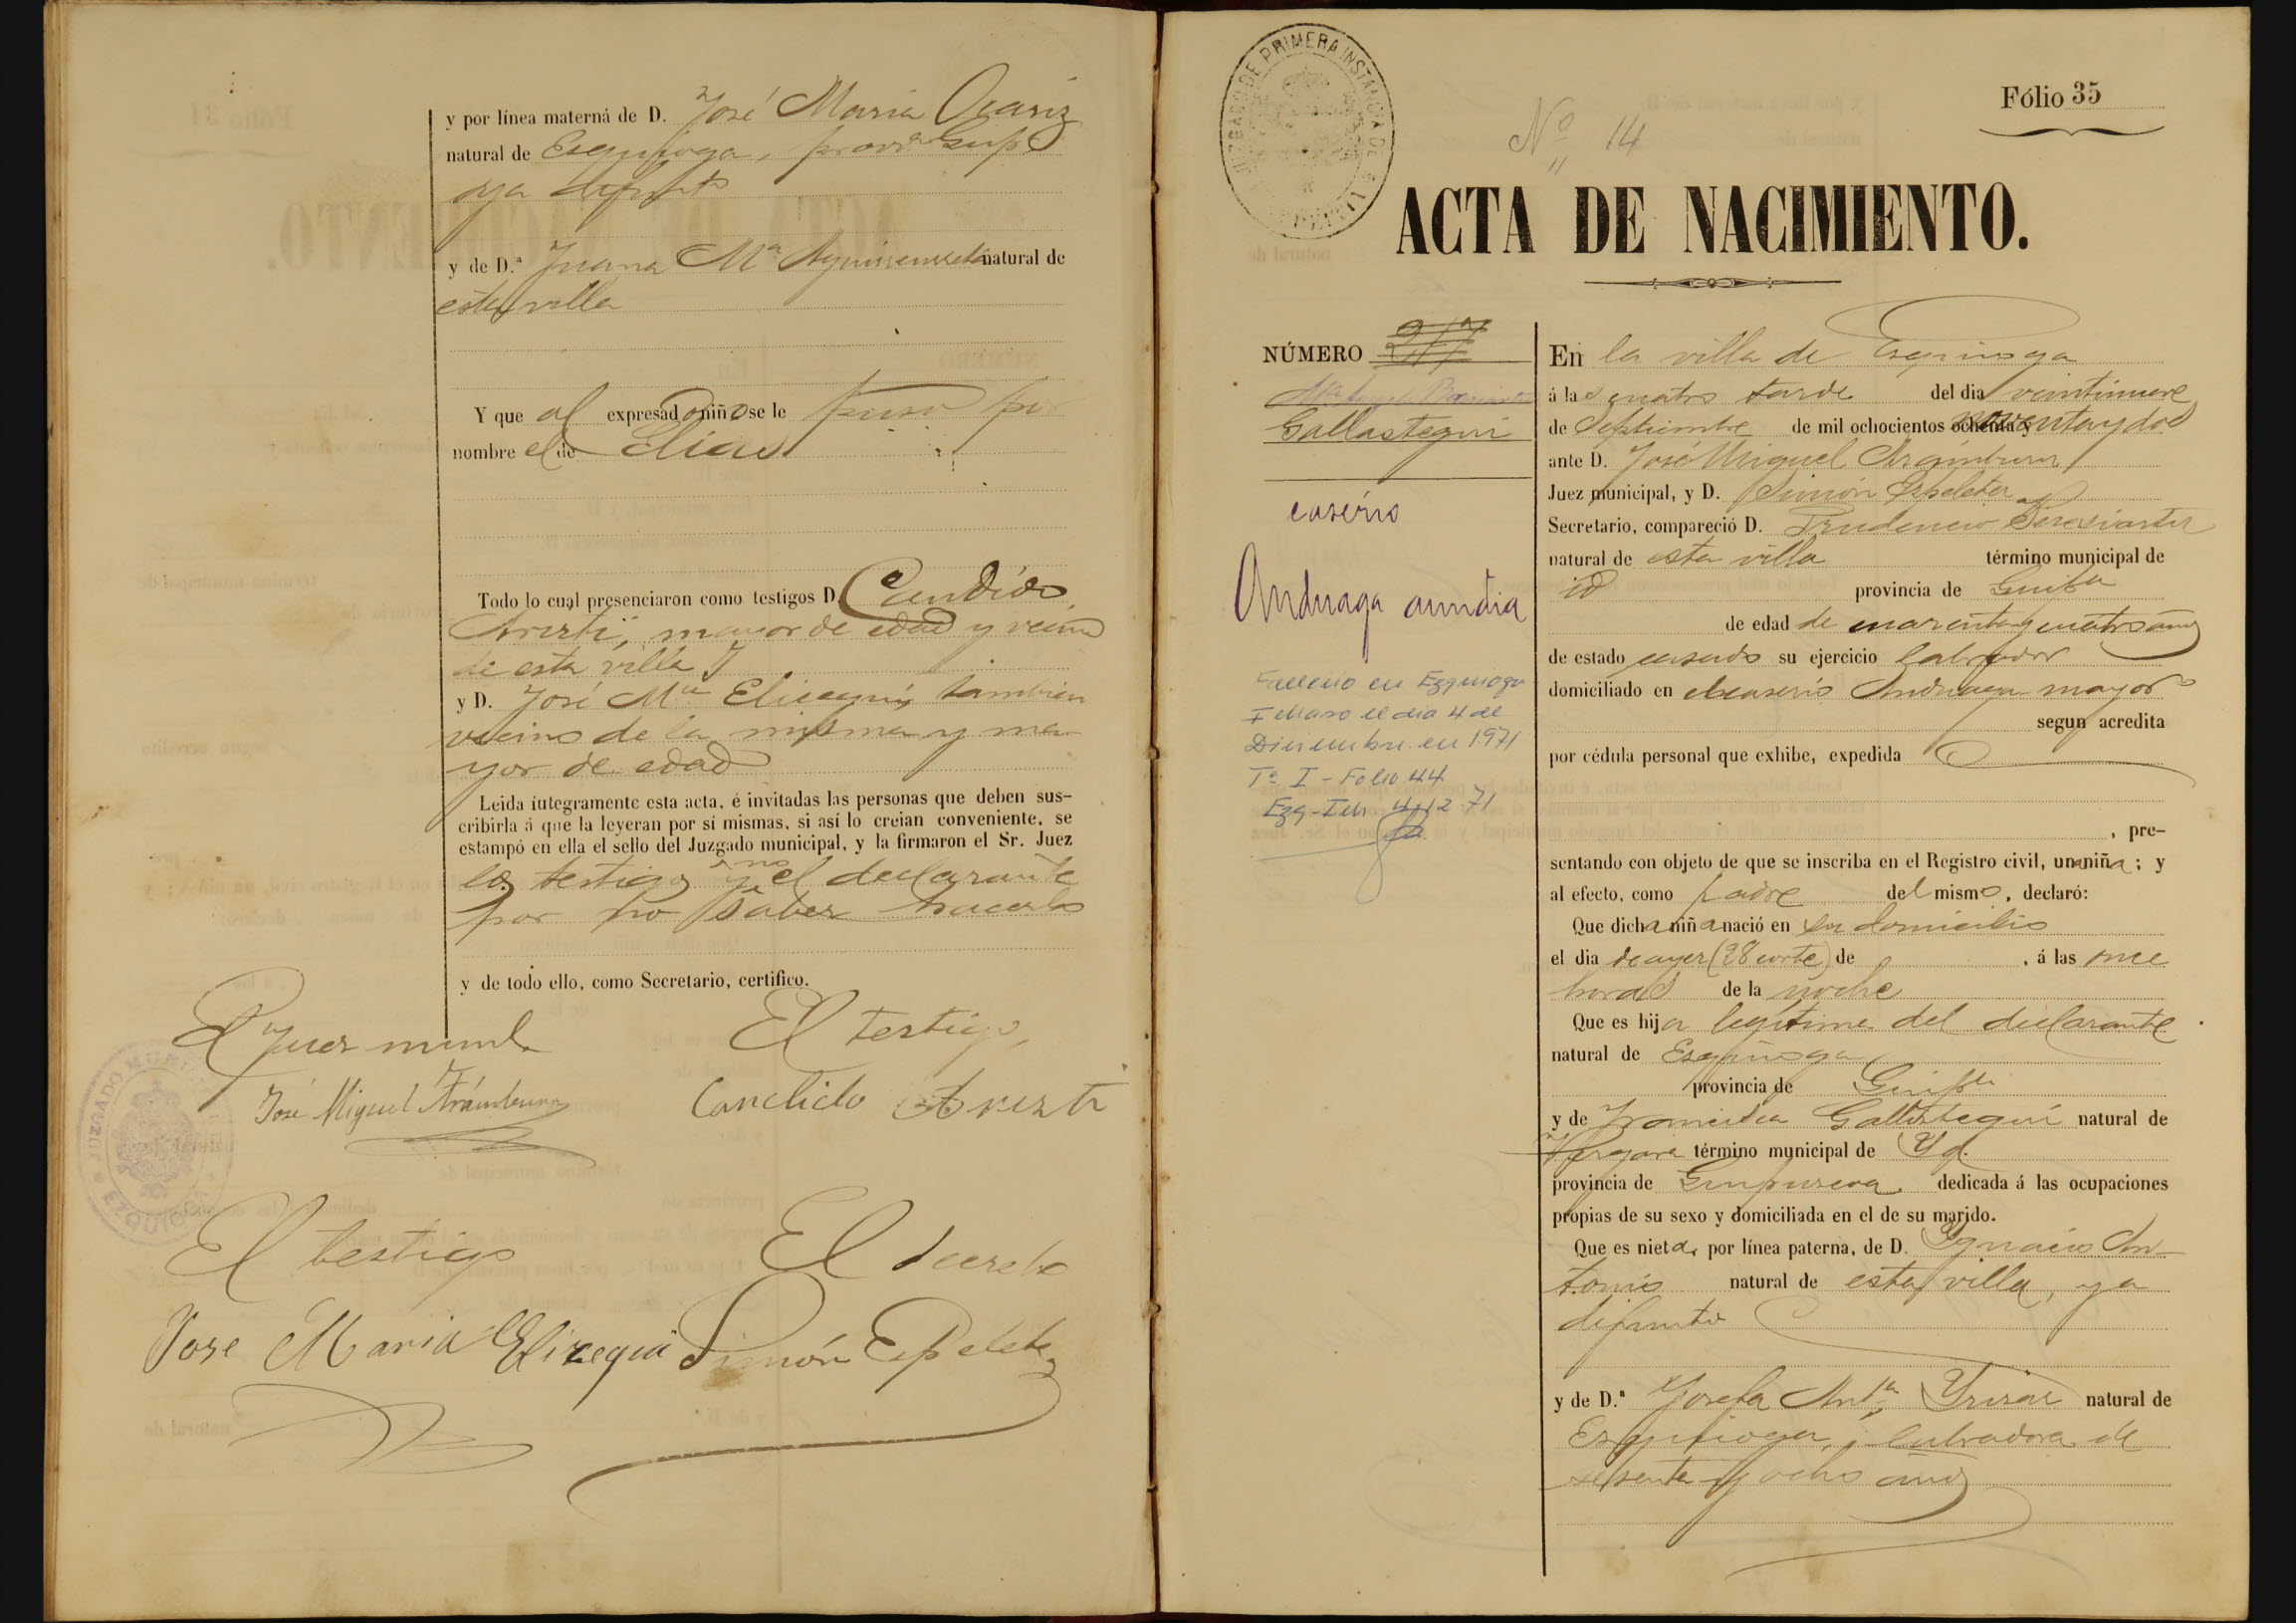 y por línea materna de D. José María Ocariz
natural de Ezquioga, prov.ª Guip.ª
ya difunto
y de D.ª Juana M.ª natural de
esta villa
Y que al expresado niño se le puso por
nombre el de Elías
Todo lo cual presenciaron como testigos D. Candido
Arizti, mayor de edad y vecino
de esta villa
y D. José M.ª Elicegui, tambien
vecino de la misma y ma-
yor de edad
Leida íntegramente esta acta, é invitadas las personas que deben sus-
cribirla á que la leyeran por sí mismas, si así lo creian conveniente, se
estampó en ella el sello del Juzgado municipal, y la firmaron el Sr. Juez
los testigos y no el declarante
por no saber hacerlo
y de todo ello, como Secretario, certifico.
El Juez munl.
El testigo,
José Miguel Arámburu
Candido Arizti
JUZGADO MUNICIPAL
EZQUIOGA
El testigo
El Secreto
Jose Maria Elizegui
Simón Ezpeleta
JUZGADO DE PRIMERA INSTANCIA DE
Nº 14
Fólio 35
ACTA DE NACIMIENTO.
NÚMERO
Gallastegui
caserio
Anduaga aundia
Falleció en Ezquioga
Ichaso el dia 4 de
Diciembre en 1971
Tº I - Folio 44
Ezq-Ich. 4-12-71
En la villa de Ezquioga
á las cuatro tarde del dia veintinueve
de Septiembre de mil ochocientos noventa y dos
ante D. José Miguel Arámburu
Juez municipal, y D. Simón Ezpeleta
Secretario, compareció D. Prudencio
natural de esta villa término municipal de
id provincia de Guip.ª
de edad de cuarenta y cuatro años
de estado casado su ejercicio labrador
domiciliado en el caserío Anduaga mayor
segun acredita
por cédula personal que exhibe, expedida
, pre-
sentando con objeto de que se inscriba en el Registro civil, una niña; y
al efecto, como padre del mismo, declaró:
Que dicha niña nació en su domicilio
el dia de ayer (28 corte) de , á las once
horas de la noche
Que es hija legítima del declarante
natural de Ezquioga,
provincia de Guip.ª
y de Francisca Gallastegui natural de
Vergara término municipal de Yd.
provincia de Guipuzcoa dedicada á las ocupaciones
propias de su sexo y domiciliada en el de su marido.
Que es nieta, por línea paterna, de D. Ygnacio An-
tonio natural de esta villa, ya
difunto
y de D.ª Josefa Ant.ª Yrizar natural de
Ezquioga, labradora de
sesenta y ocho años